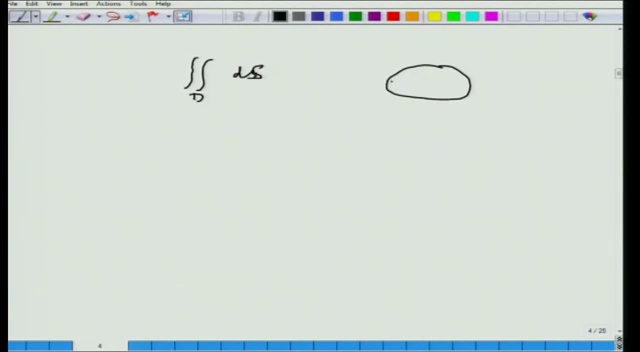 File Edit View Insert Actions Tools Help
B I
∬ dS
D
4 / 25
4